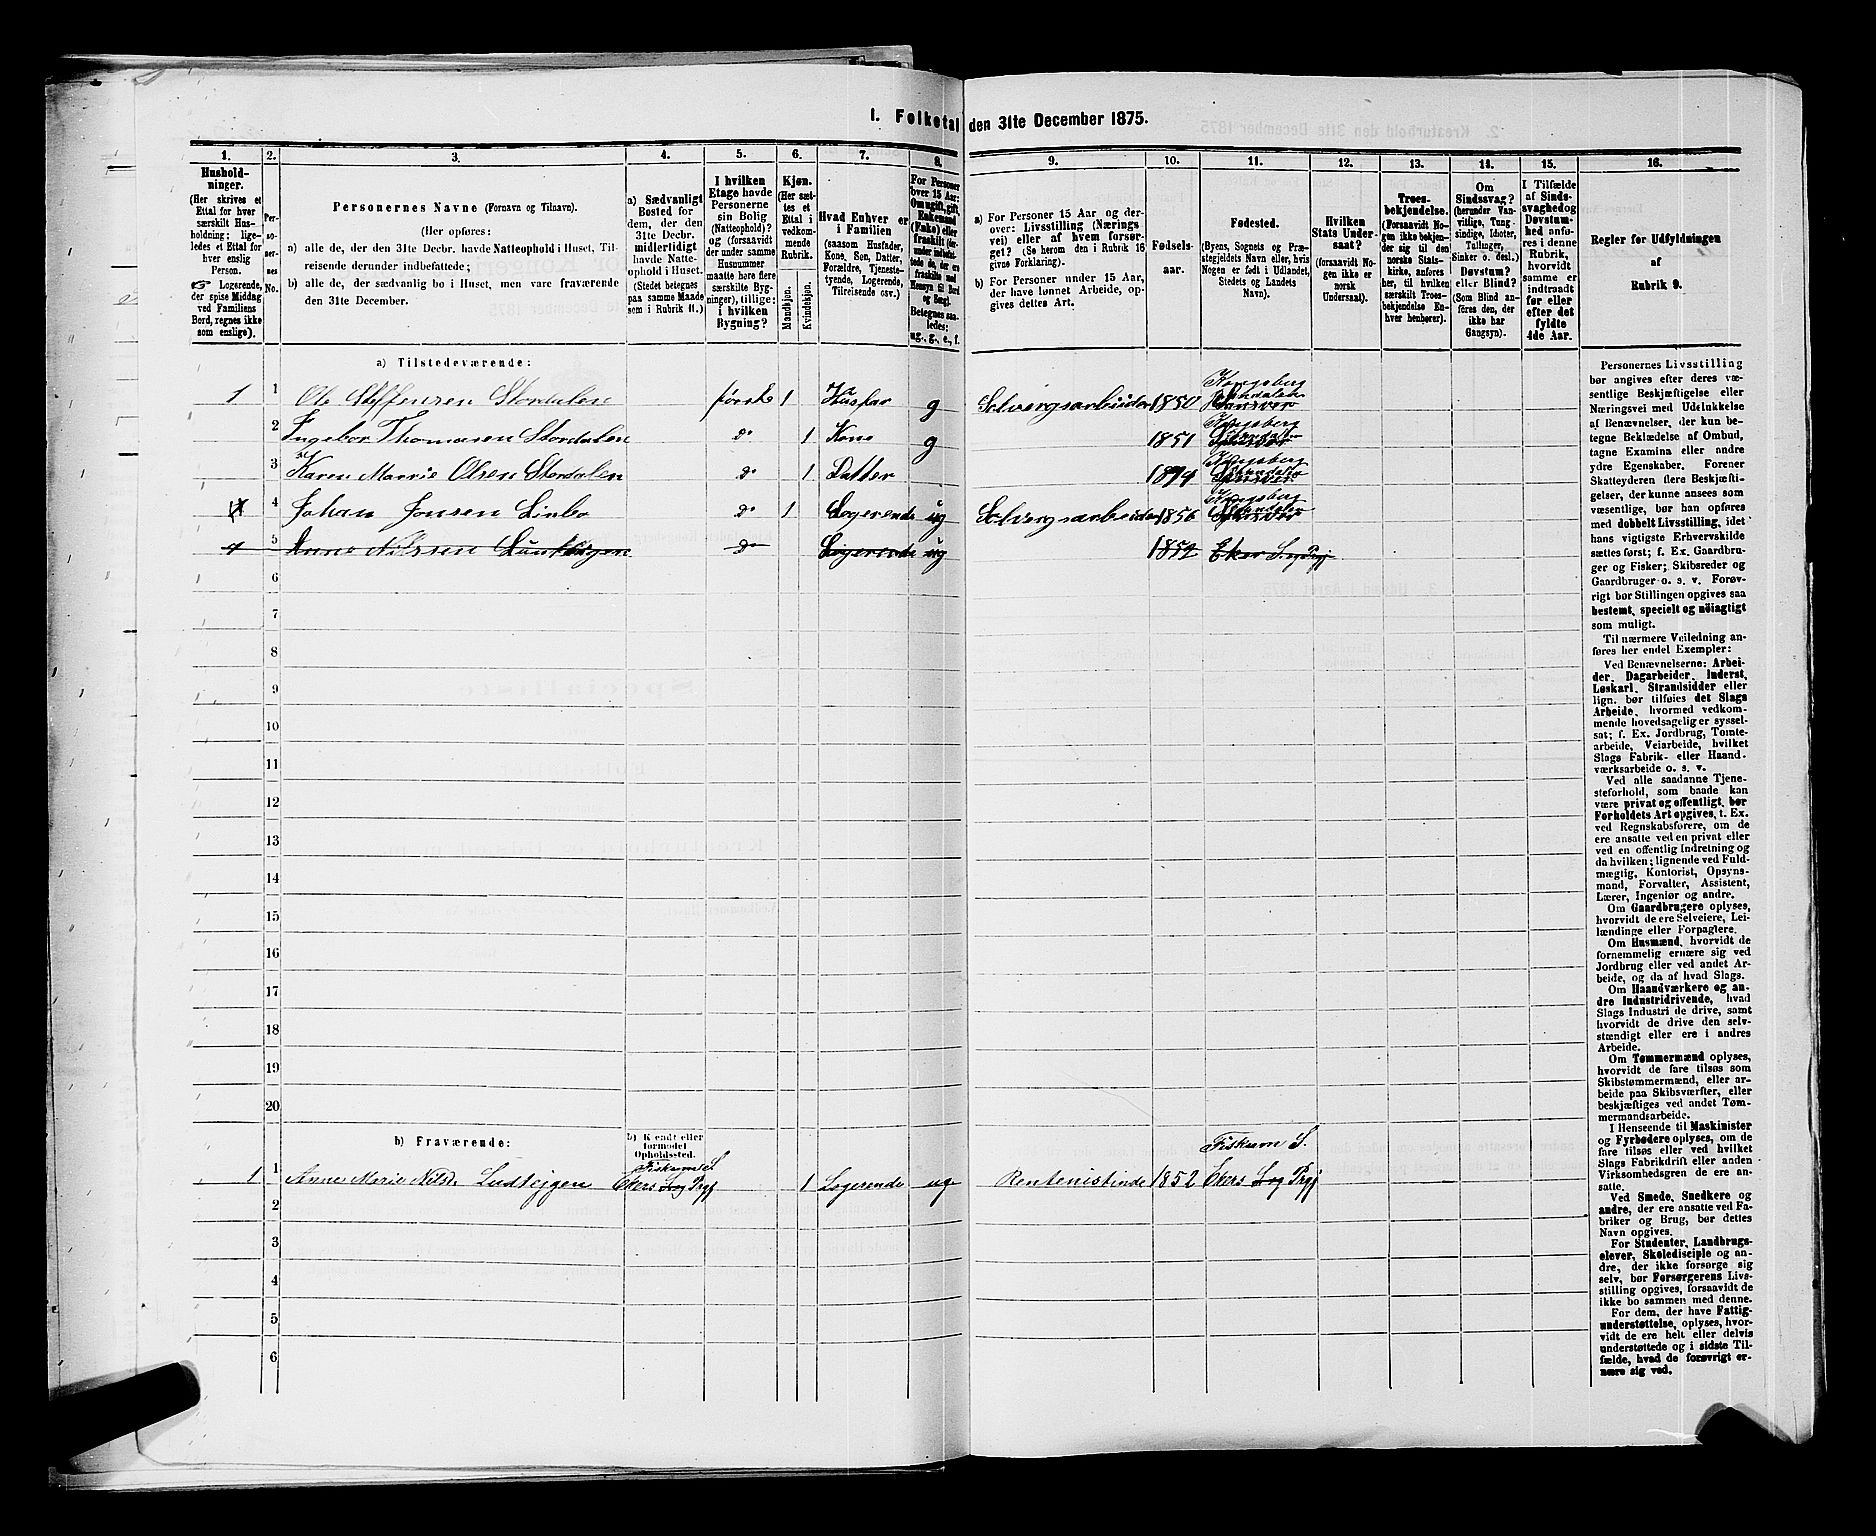 1. Folketal den 31te December 1875.
1. 2. 3. 4. 5. 6. 7. 8. 9. 10. 11. 12. 13. 14. 15. 16.
Hushold-
ninger.
(Her skrives et
Ettal for hver
særskilt Hus-
holdning; lige-
ledes et Ettal for
hver enslig
Person.
Logerende,
der spise Middag
ved Familiens
Bord, regnes ikke
som enslige).
Per-
so-
ner-
nes
No.
Personernes Navne (Fornavn og Tilnavn).
(Her opføres:
a) alle de, der den 31te Decbr. havde Natteophold i Huset, Til-
reisende derunder indbefattede;
b) alle de, der sædvanlig bo i Huset, men vare fraværende
den 31te December.
a) Sædvanligt
Bosted for
dem, der den
31te Decbr.
midlertidigt
havde Natte-
ophold i Huset.
(Stedet betegnes
paa samme Maade
som i Rubrik 11.)
I hvilken
Etage havde
Personerne
sin Bolig
(Natteophold)?
og (forsaavidt
der under samme
Husnummer
maatte høre flere
særskilte Byg-
ninger), tillige:
i hvilken
Bygning?
Kjøn.
(Her sæt-
tes et
Ettal i
vedkom-
mende
Rubrik.
Mandkjøn.
Kvindekjøn.
Hvad Enhver er
i Familien
(saasom Husfader,
Kone, Søn, Datter,
Forældre, Tjeneste-
tyende, Logerende,
Tilreisende osv.)
For Personer
over 15 Aar:
Om ugift, gift,
Enkemand
(Enke) eller
fraskilt
Betegnes saa-
ledes:
ug., g., e., f.
a) For Personer 15 Aar og der-
over: Livsstilling (Nærings
vei) eller af hvem forsør-
get? (Se herom den i Rubrik 16
givne Forklaring).
b) For Personer under 15 Aar,
der have lønnet Arbeide, op-
gives dettes Art.
Fødsels-
aar.
Fødested.
(Byens, Sognets og Præ-
stegjeldets Navn eller, hvis
Nogen er født i Udlandet,
Stedets og Landets
Navn).
Hvilken
Stats Under-
saat?
(forsaavidt No-
gen ikke er
norsk
Undersaat).
Troes-
bekjendelse.
(Forsaavidt No-
gen ikke bekjen-
der sig til den
norske Stats-
kirke, anføres
her, til hvilken
særskilt Troes-
bekjendelse En-
hver henhører).
Om
Sindssvag?
(herunder Van-
vittige, Tung-
sindige, Idioter,
Tullinger,
Sinker o. desl.)
Døvstum?
eller Blind?
(Som Blind an-
føres den, der
ikke har
Gangsyn).
I Tilfælde
af Sinds-
svaghed og
Døvstum-
hed anfø-
res i denne
Rubrik,
hvorvidt
samme er
indtraadt
før eller
efter det
fyldte
4de Aar.
Regler for Udfyldningen
af
Rubrik 9.
a) Tilstedeværende:
1 1 Ole Steffensen Stordalen første 1 Husfar g Solvergsarbeider 1850 Kongsberg
2 Ingebor Thomasen Stordalen do 1 Kone g 1851 Kongsberg
3 Karen Marrie Olsen Stordalen do 1 Datter 1874 Kongsberg
4 Johan Jonsen Linbo do 1 Logerende ug Solvergsarbeider 1856 Kongsberg
5 Anne Nilssen do Logerende ug 1852 Eker
6
7
8
9
10
11
12
13
14
15
16
17
18
19
20
b) Fraværende:
b) Kjendt eller
formodet
Opholdssted.
Fiskum S. Fiskum S.
1 1 Anne Marie Nilsd. Ludteigen Ekers Prgj 1 Logerende ug Rentenistinde 1852 Ekers Prgj
2
3
4
5
6
Personernes Livsstilling
bør angives efter deres væ-
sentlige Beskjæftigelse eller
Næringsvei med Udelukkelse
af Benævnelser, der kun be-
tegne Beklædelse af Ombud,
tagne Examina eller andre
ydre Egenskaber. Forener
Skatteyderen flere Beskjæfti-
gelser, der kunne ansees som
væsentlige, bør han opføres
med dobbelt Livsstilling, idet
hans vigtigste Erhvervskilde
sættes først; f. Ex. Gaardbru-
ger og Fisker; Skibsreder og
Gaardbruger o. s. v. Forøv-
rigt bør Stillingen opgives saa
bestemt, specielt og nøiagtigt
som muligt.
Til nærmere Veiledning an-
føres her endel Exempler:
Ved Benævnelserne: Arbei-
der, Dagarbeider, Inderst,
Løskarl, Strandsidder eller
lign. bør tilføies det Slags
Arbeide, hvormed vedkom-
mende hovedsagelig er syssel-
sat; f. Ex. Jordbrug, Tomte-
arbeide, Veiarbeide, hvilket
Slags Fabrik- eller Haand-
værksarbeide o. s. v.
Ved alle saadanne Tjene-
steforhold, som baade kan
være privat og offentligt, bør
Forholdets Art opgives, t. Ex.
ved Regnskabsførere, om de
ere ansatte ved en privat eller
ved en offentlig Indretning og
da hvilken; lignende ved Fuld-
mægtig, Kontorist, Opsyns-
mand, Forvalter, Assistent,
Lærer, Ingeniør og andre.
Om Gaardbrugere oplyses,
hvorvidt de ere Selveiere, Lei-
lændinge eller Forpagtere.
Om Husmænd, hvorvidt de
fornemmelig ernære sig ved
Jordbrug eller ved andet Ar-
beide, og da af hvad Slags.
Om Haandværkere og an-
dre Industridrivende, hvad
Slags Industri de drive, samt
hvorvidt de drive den selv-
stændigt eller ere i andres
Arbeide.
Om Tømmermænd oplyses,
hvorvidt de fare tilsøs som
Skibstømmermænd, eller ar-
beide paa Skibsværfter, eller
beskjæftiges ved andet Tøm-
mermandsarbeide.
I Henseende til Maskinister
og Fyrbødere oplyses, om de
fare tilsøs eller ved hvilket
Slags Fabrikdrift eller anden
Virksomhedsgren de ere an-
satte.
Ved Smede, Snedkere og
andre, der ere ansatte ved Fa-
briker og Brug, bør dettes
Navn opgives.
For Studenter, Landbrugs-
elever, Skoledisciple og an-
dre, der ikke forsørge sig
selv, bør Forsørgerens Livs-
stilling opgives, forsaavidt de
ikke bo sammen med denne.
For dem, der have Fattig-
understøttelse, oplyses, hvor-
vidt de ere helt eller delvis
understøttede og i sidste Til-
fælde, hvad de forøvrigt er-
nære sig ved.